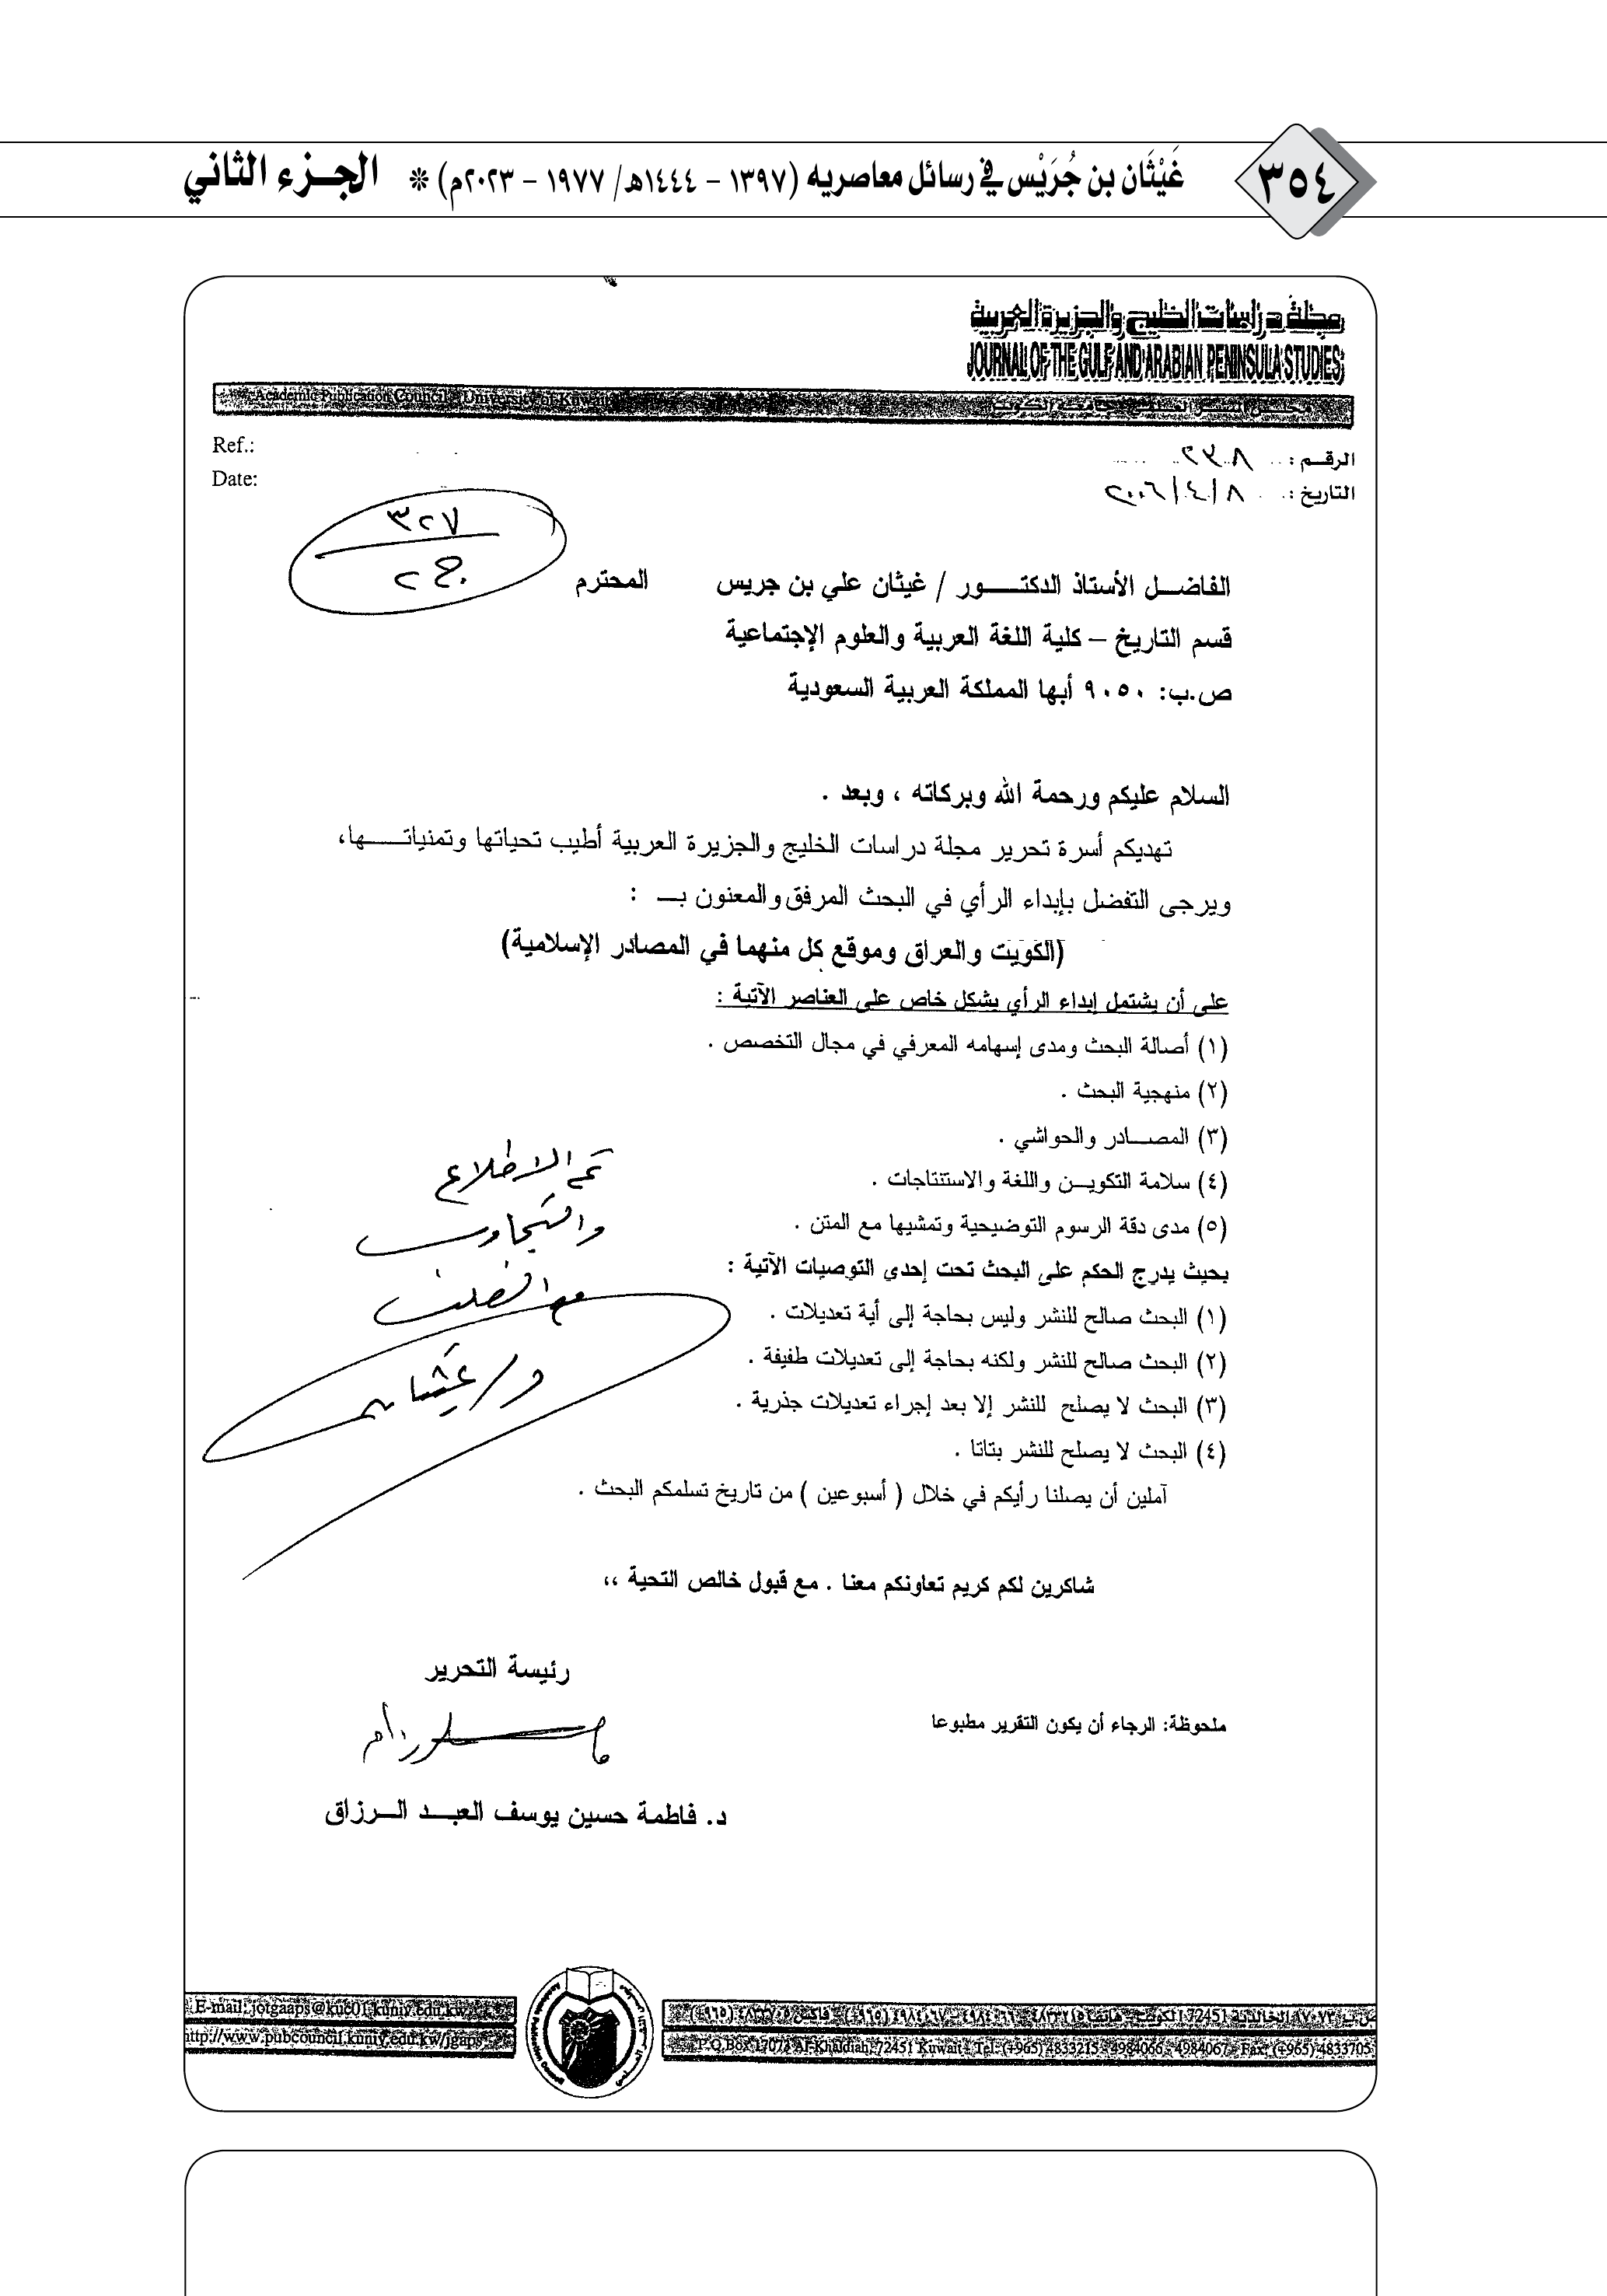 ٣٥٤
غَيْثَان بن جُرَيْس في رسائل معاصريه (١٣٩٧ - ١٤٤٤هـ/ ١٩٧٧ - ٢٠٢٣م) * الجـزء الثاني
مجلة دراسات الخليج والجزيرة العربية
JOURNAL OF THE GULF AND ARABIAN PENINSULA STUDIES
مجلس النشر العلمي - جامعة الكويت
Academic Publication Council - University of Kuwait
الرقـم : ٢٣٨
Ref.:
التاريخ : ٢٠٠٦/٤/٨
Date:
٣٢٧
ج ٢
الفاضـل الأستاذ الدكتـــور / غيثان علي بن جريس المحترم
قسم التاريخ – كلية اللغة العربية والعلوم الإجتماعية
ص.ب: ٩٠٥٠ أبها المملكة العربية السعودية
السلام عليكم ورحمة الله وبركاته ، وبعد .
تهديكم أسرة تحرير مجلة دراسات الخليج والجزيرة العربية أطيب تحياتها وتمنياتــــها،
ويرجى التفضل بإبداء الرأي في البحث المرفق والمعنون بــ :
(الكويت والعراق وموقع كل منهما في المصادر الإسلامية)
على أن يشتمل إبداء الرأي بشكل خاص على العناصر الآتية :
(١) أصالة البحث ومدى إسهامه المعرفي في مجال التخصص .
(٢) منهجية البحث .
(٣) المصـــادر والحواشي .
(٤) سلامة التكويــن واللغة والاستنتاجات .
(٥) مدى دقة الرسوم التوضيحية وتمشيها مع المتن .
بحيث يدرج الحكم على البحث تحت إحدى التوصيات الآتية :
(١) البحث صالح للنشر وليس بحاجة إلى أية تعديلات .
(٢) البحث صالح للنشر ولكنه بحاجة إلى تعديلات طفيفة .
(٣) البحث لا يصلح للنشر إلا بعد إجراء تعديلات جذرية .
(٤) البحث لا يصلح للنشر بتاتا .
آملين أن يصلنا رأيكم في خلال ( أسبوعين ) من تاريخ تسلمكم البحث .
تم الاطلاع
والتجاوب
مع الطلب
د/ غيثان
شاكرين لكم كريم تعاونكم معنا . مع قبول خالص التحية ،،
رئيسة التحرير
ملحوظة: الرجاء أن يكون التقرير مطبوعا
د. فاطمة حسين يوسف العبـــد الــرزاق
ص.ب: ١٧٠٧٣ الخالدية 72451 الكويت - هاتف: ٤٨٣٣٢١٥ - ٤٩٨٤٠٦٦ - ٤٩٨٤٠٦٧ (٩٦٥+) - فاكس: ٤٨٣٣٧٠٥ (٩٦٥+)
P.O.Box 17073 Al-Khaldiah, 72451 Kuwait - Tel: (+965) 4833215 - 4984066 - 4984067 - Fax: (+965) 4833705
E-mail: jotgaaps@kuc01.kuniv.edu.kw
http://www.pubcouncil.kuniv.edu.kw/jgaps